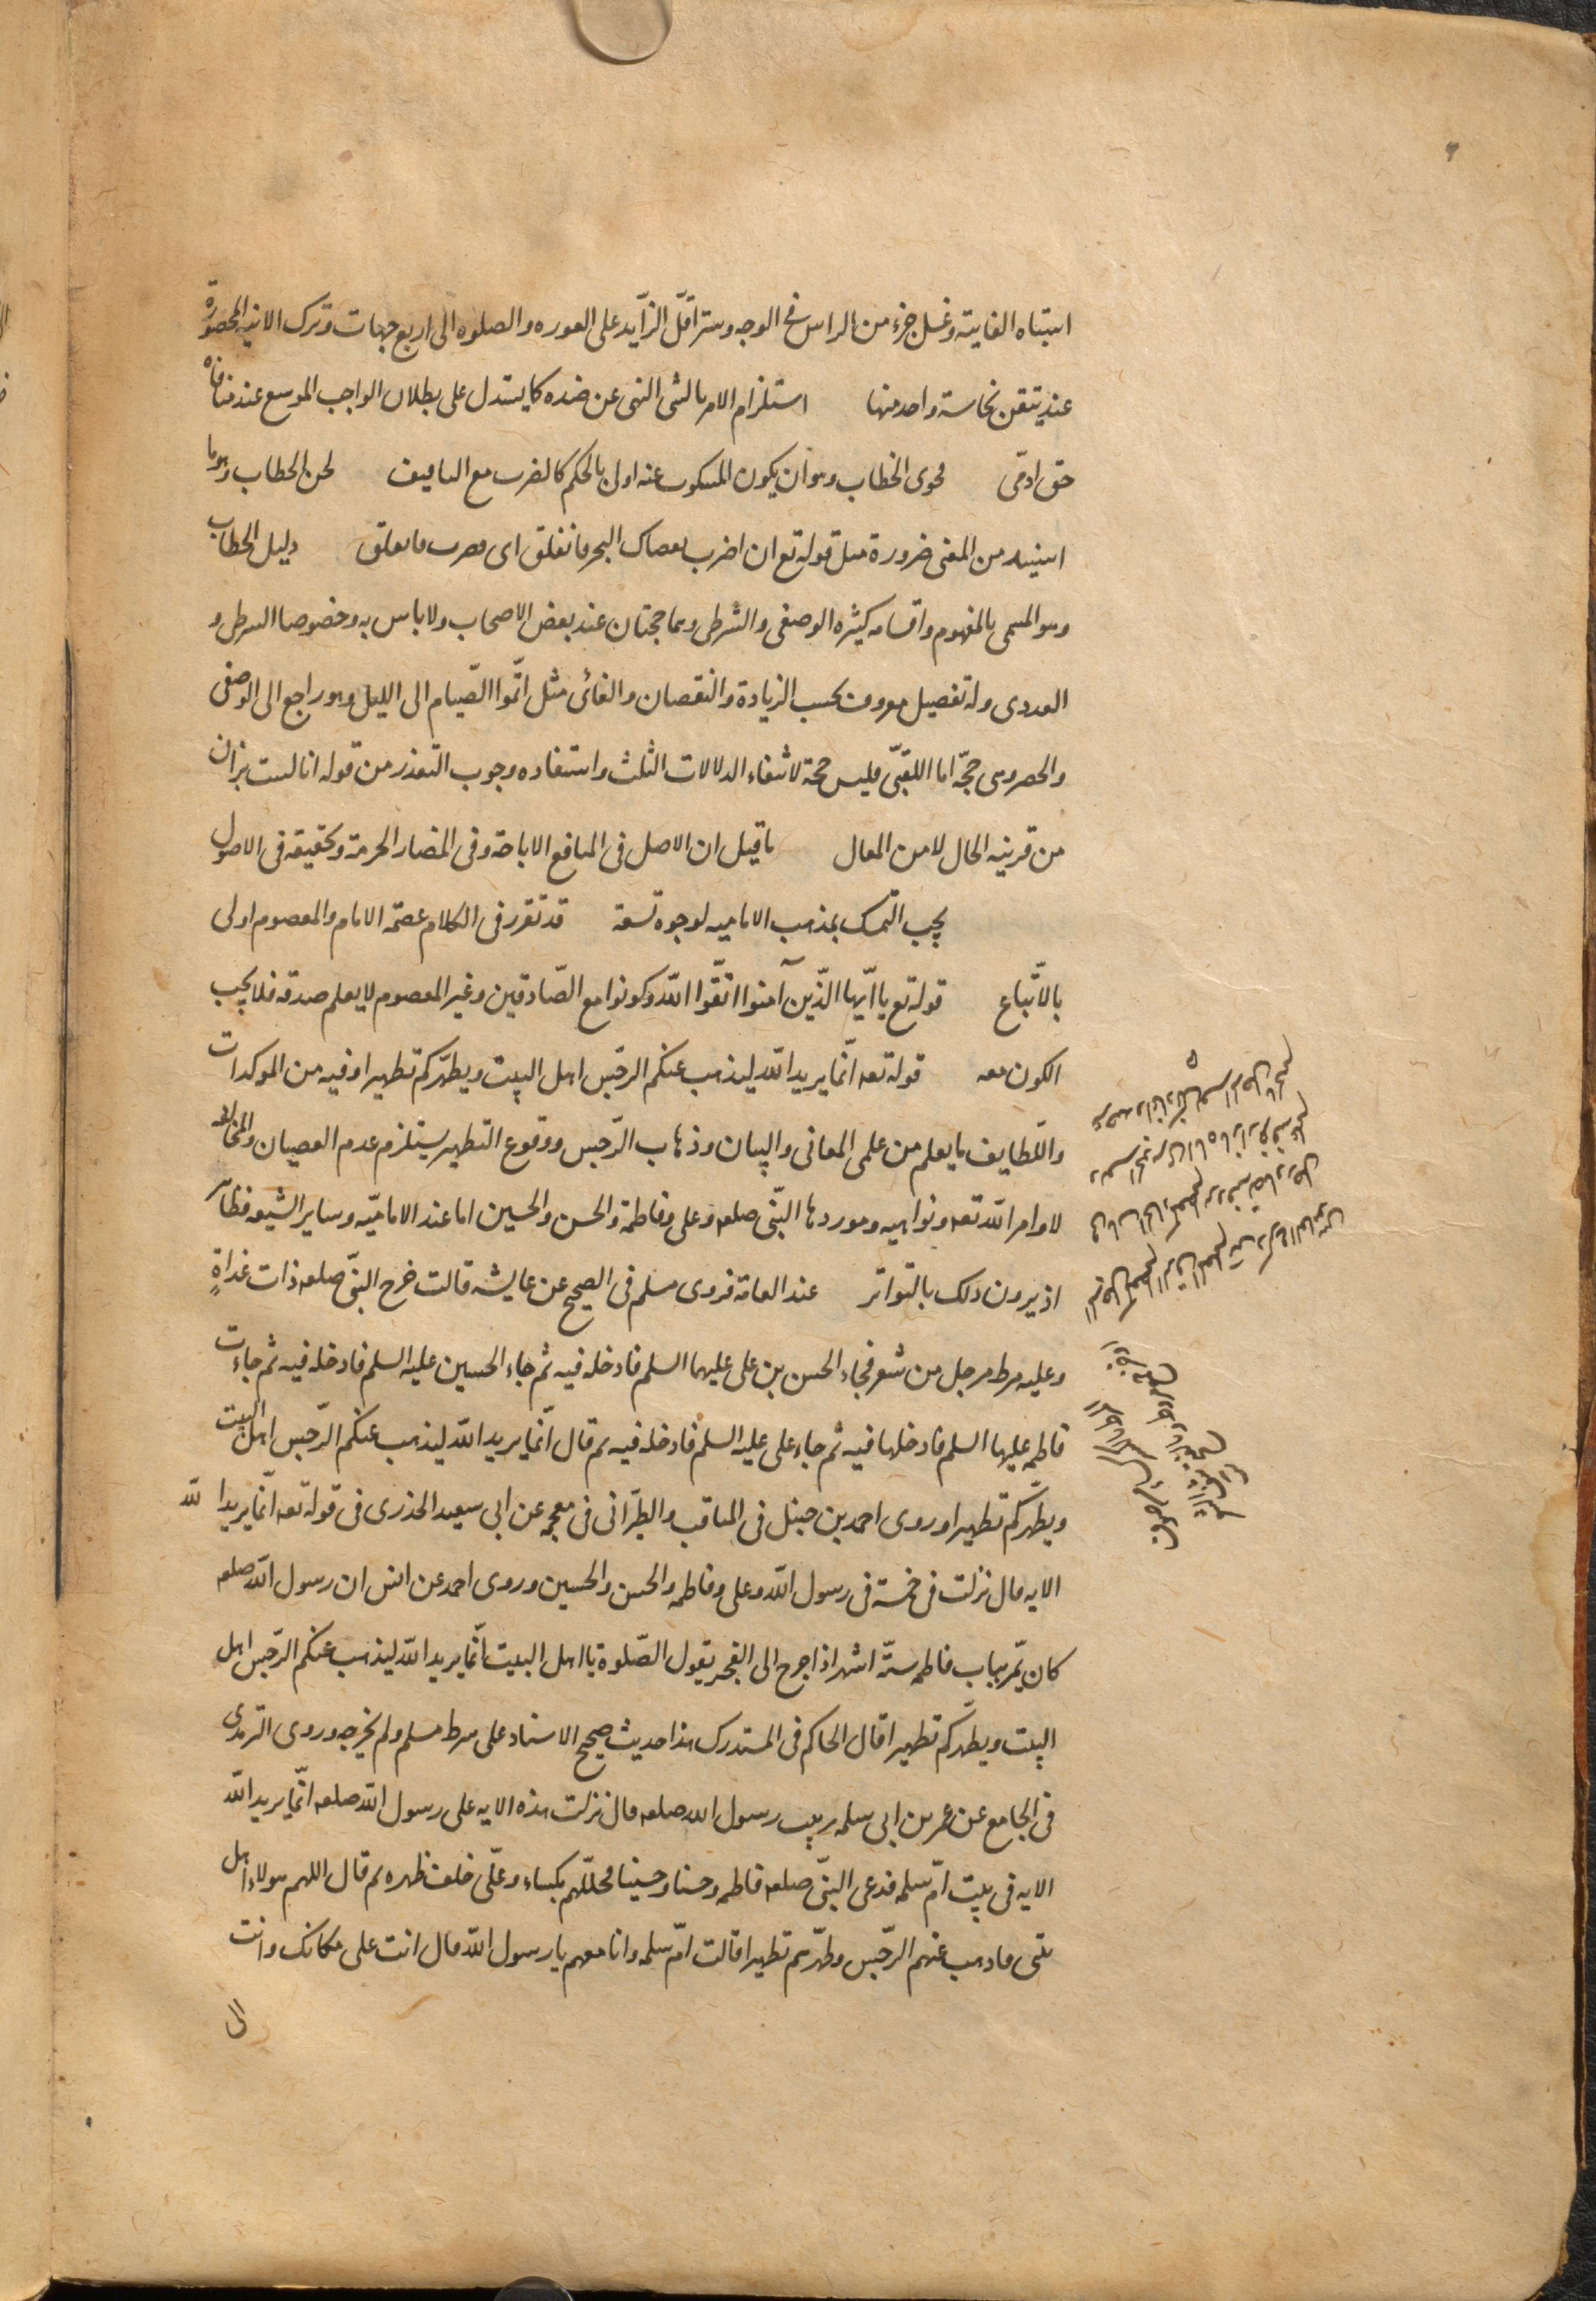 اشتباه الفايتة وغسل جزء من الراس فى الوجه وستر اقلّ الزّايد على العوره والصلوة الى اربع جهات وترك الانيه المحصورة
عند تيقن نجاسة واحد منها استلزام الامر بالشى النهى عن ضده كما يستدل على بطلان الواجب الموسع عند منافاه
حق ادمّى فحوى الخطاب وهو ان يكون المسكوت عنه اولى بالحكم كالضرب مع التافيف لحن الخطاب وهو ما
استفيد من المعنى ضرورة مثل قوله تع ان اضرب بعصاك البحر فانفلق اى فضرب فانفلق دليل الخطاب
وهو المسمى بالمفهوم واقسامه كثيره الوصفى والشرطى وهما حجتان عند بعض الاصحاب ولا باس به وخصوصا الشرطى و
العددى وله تفصيل معروف بحسب الزيادة والنقصان والغائى مثل اتمّوا الصّيام الى الليل وهو راجع الى الوصفى
والحصر وهى حجّة اما اللقبّى فليس حجة لانتفاء الدلالات الثلث واستفاده وجوب التعذر من قوله انا لست بزان
من قرينه الحال لا من المقال ما قيل ان الاصل فى المنافع الاباحة وفى المضار الحرمة وتحقيقه فى الاصول
يجب التمسك بمذهب الاماميه لوجوه تسعة قد تقرر فى الكلام عصمة الامام والمعصوم اولى
بالاتّباع قوله تع يا ايّها الذّين آمنوا اتّقوا اللّه وكونوا مع الصّادقين وغير المعصوم لا يعلم صدقه فلا يجب
الكون معه قوله تعه انّما يريد اللّه ليذهب عنكم الرجّس اهل البيت ويطهّركم تطهيرا وفيه من الموكدات
واللّطايف ما يعلم من علمى المعانى والبيان وذهاب الرّجس ووقوع التطهير يستلزم عدم العصيان والمخالفه
لاوامر اللّه تعه ونواهيه وموردها النّبى صلعه وعلى وفاطمة والحسن والحسين اما عند الاماميّه وساير الشيعه فظاهر
اذ يروون ذلك بالتواتر عند العامة فروى مسلم فى الصحيح عن عايشه قالت خرج النبىّ صلعه ذات غداةٍ
وعليه مرط مرجل من شعر فجاء الحسن بن على عليهما السلم فادخله فيه ثم جاء الحسين عليه السلم فادخله فيه ثم جاءت
فاطمه عليها السلم فادخلها فيه ثم جاء على عليه السلم فادخله فيه ثم قال انّما يريد اللّه ليذهب عنكم الرّجس اهل البيت
ويطهّركم تطهيرا وروى احمد بن حنبل فى المناقب والطبّرانى فى معجمه عن ابى سعيد الخذرى فى قوله تعه انّما يريد اللّه
الايه قال نزلت فى خمسة فى رسول اللّه وعلى وفاطمه والحسن والحسين وروى احمد عن انس ان رسول اللّه صلعه
كان يمّر بباب فاطمه ستّة اشهر اذا خرج الى الفجر يقول الصّلوة يا اهل البيت انّما يريد اللّه ليذهب عنكم الرّجس اهل
البيت ويطهّركم تطهيرا قال الحاكم فى المستدرك هذا حديث صحيح الاسناد على شرط مسلم ولم يخرجه وروى الترمذى
فى الجامع عن عمر بن ابى سلمه ربيب رسول الله صلعه قال نزلت هذه الايه على رسول اللّه صلعه انّما يريد اللّه
الايه فى بيت امّ سلمه فدعى النبىّ صلعه فاطمه وحسنا وحسينا فجلّلهم بكساء وعلّى خلف ظهره ثم قال اللهم هولاء اهل
بيتى فاذهب عنهم الرّجس وطهّرهم تطهيرا قالت امّ سلمه وانا معهم يا رسول اللّه قال انت على مكانك وانت
الى